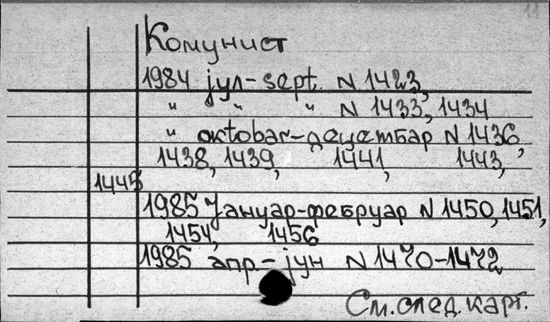 Комунист
1984 јул-sept. N 1423,
" " " N 1433, 1434
" oktobar-децембар N 1436,
1438, 1439, 1441, 1443,
1445
1985 Јануар-фебруар N 1450, 1451,
1454, 1456
1985 апр.-јун N 1470-1472
См. след. карт.